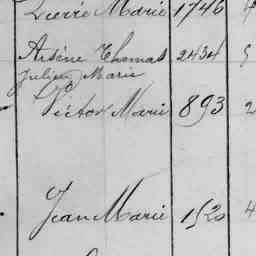 Pierre Marie 1746 4
Arsène Thomas 2434 5
Julien Marie
Victor Marie 893 2
Jean Marie 1520 4